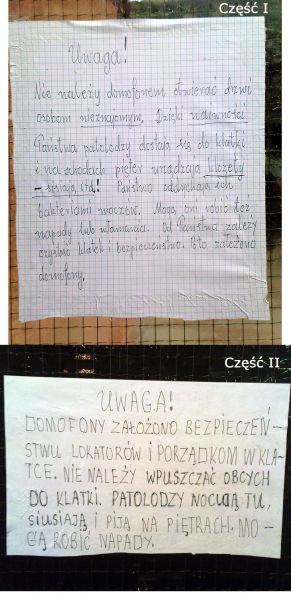 Część I
Uwaga!
Nie należy domofonem otwierać drzwi
osobom nieznajomym. Dzięki naiwności
Państwa patolodzy dostają się do klatki
i na schodach pięter urządzają klozety
- sikają, itd! Państwo oddychają ich
bakteriami moczów. Mogą oni robić też
napady lub włamania. Od Państwa zależy
czystość klatek i bezpieczeństwo. Po to założono
domofony.
Część II
UWAGA!
DOMOFONY ZAŁOŻONO BEZPIECZEŃ-
STWU LOKATORÓW I PORZĄDKOM W KLA-
TCE. NIE NALEŻY WPUSZCZAĆ OBCYCH
DO KLATKI. PATOLODZY NOCUJĄ TU,
SIUSIAJĄ I PIJĄ NA PIĘTRACH. MO-
GĄ ROBIĆ NAPADY.